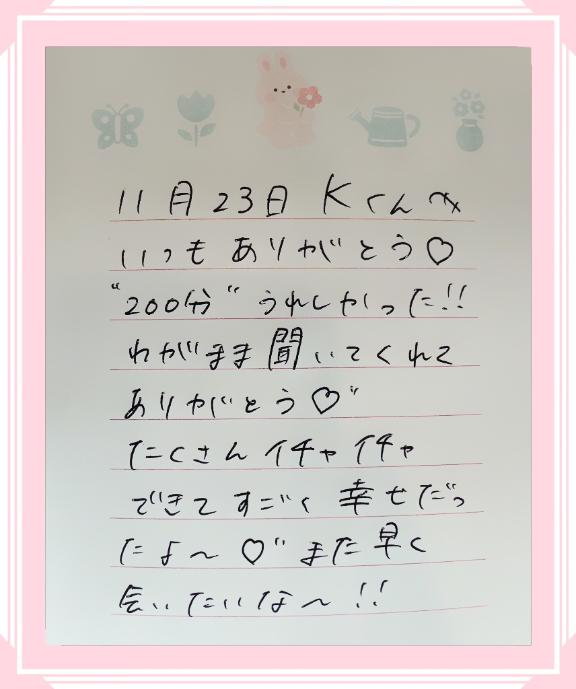 11月23日 Kくんへ
いつも ありがとう♡
“200分“ うれしかった!!
わがまま 聞いてくれて
ありがとう♡"
たくさん イチャイチャ
できて すごく 幸せだっ
たよ〜♡" また 早く
会いたいな〜!!